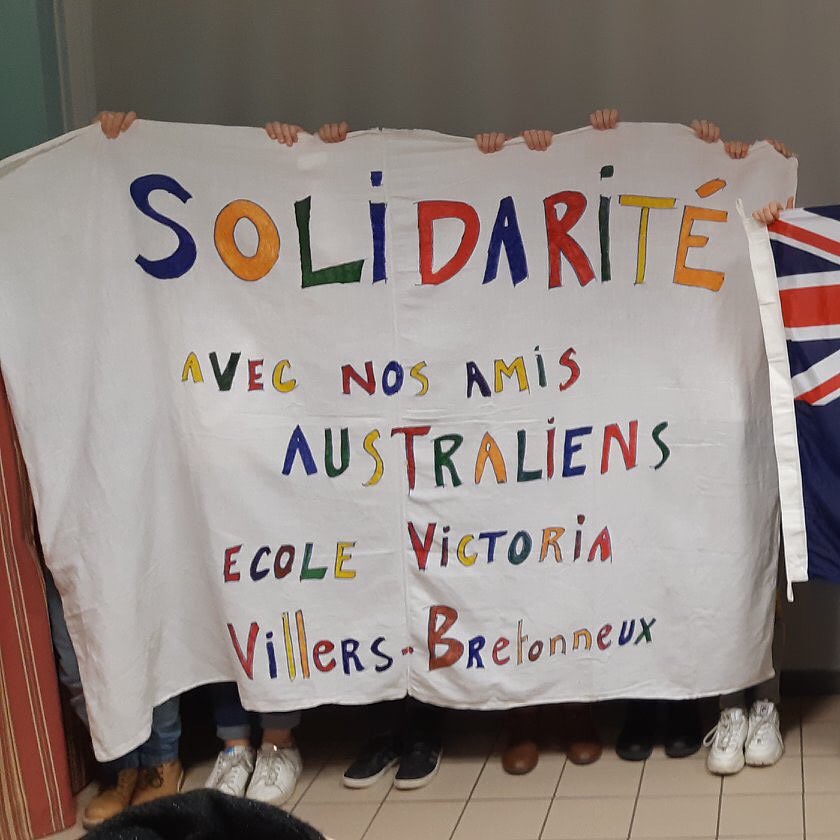 SOLiDARiTÉ
AVEC NOS AMiS
AUSTRALiENS
ECOLE VicTORiA
Villers-Bretonneux